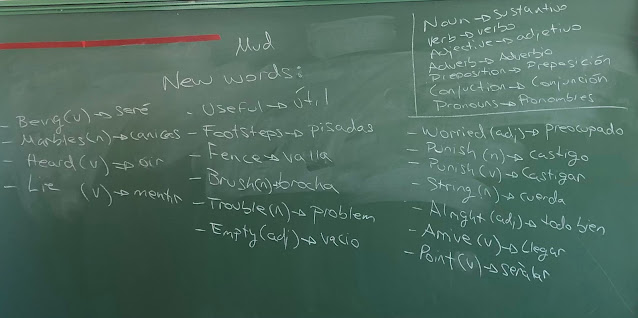 Mud
New words:
- Being (v) → seré
- Marbles (n) → canicas
- Heard (v) → oir
- Lie (v) → mentir
- Useful → útil
- Footsteps → pisadas
- Fence → valla
- Brush (n) → brocha
- Trouble (n) → problem
- Empty (adj) → vacio
Noun → Sustantivo
Verb → Verbo
Adjective → adjetivo
Adverb → Adverbio
Preposition → Preposición
Conjuction → Conjunción
Pronouns → Pronombres
- Worried (adj) → preocupado
- Punish (n) → Castigo
- Punish (v) → Castigar
- String (n) → cuerda
- Alright (adj) → todo bien
- Arrive (v) → Llegar
- Point (v) → señalar